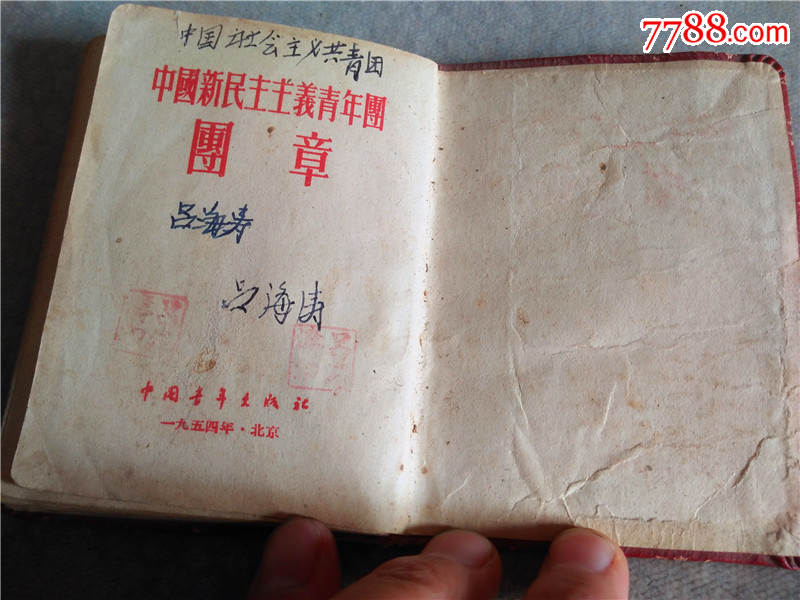 7788.com
中国社会主义共青团
中國新民主主義青年團
團章
吕海涛
吕海涛
中国青年出版社
一九五四年·北京